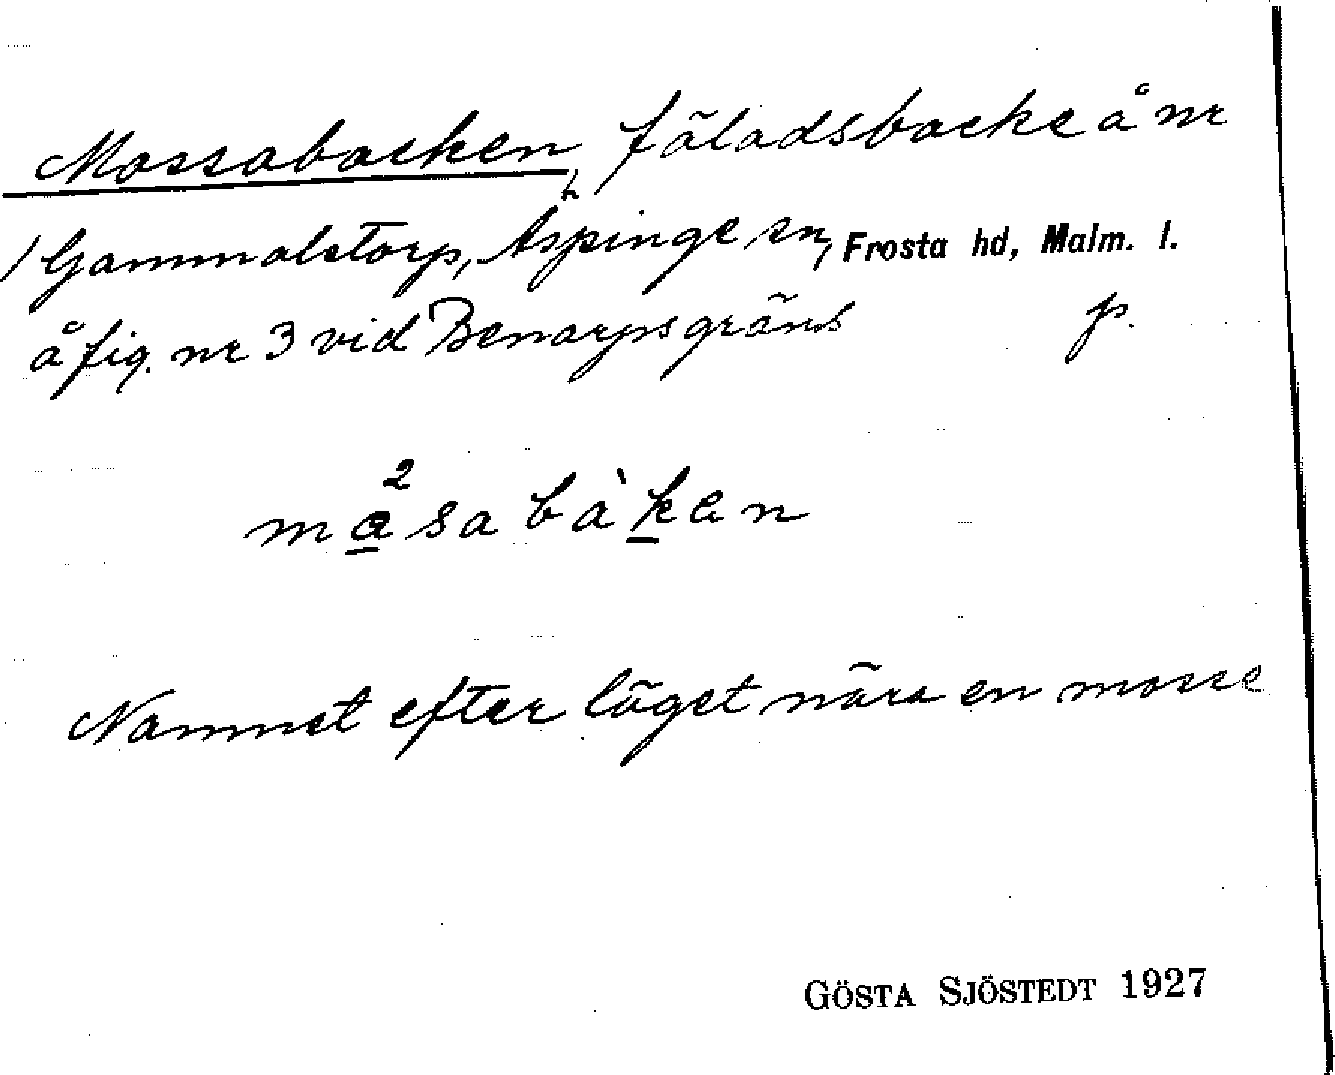 Mossabacken, fäladsbacke å nr
1 Gammalstorp, Äspinge sn, Frosta hd, Malm. l.
å fig. nr 3 vid Benarps gräns p.
må²sabàken
Namnet efter läget nära en mosse
GÖSTA SJÖSTEDT 1927